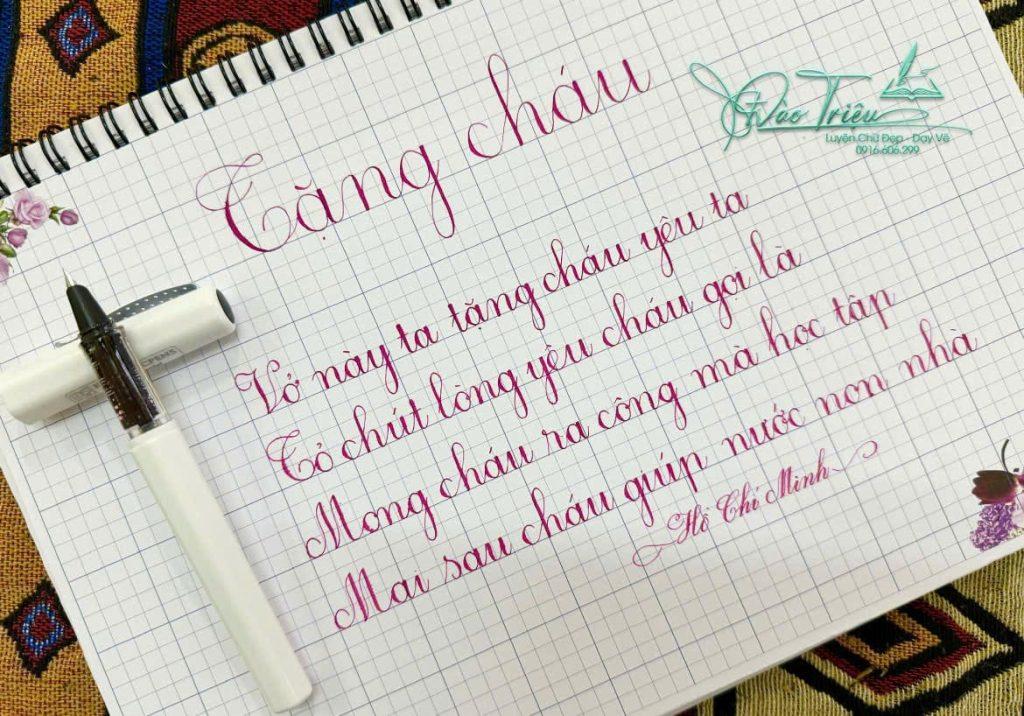 Tặng cháu
Đào Triều
Luyện Chữ Đẹp - Dạy Vẽ
0916.606.299
Vở này ta tặng cháu yêu ta
Tỏ chút lòng yêu cháu gọi là
Mong cháu ra công mà học tập
Mai sau cháu giúp nước non nhà
Hồ Chí Minh